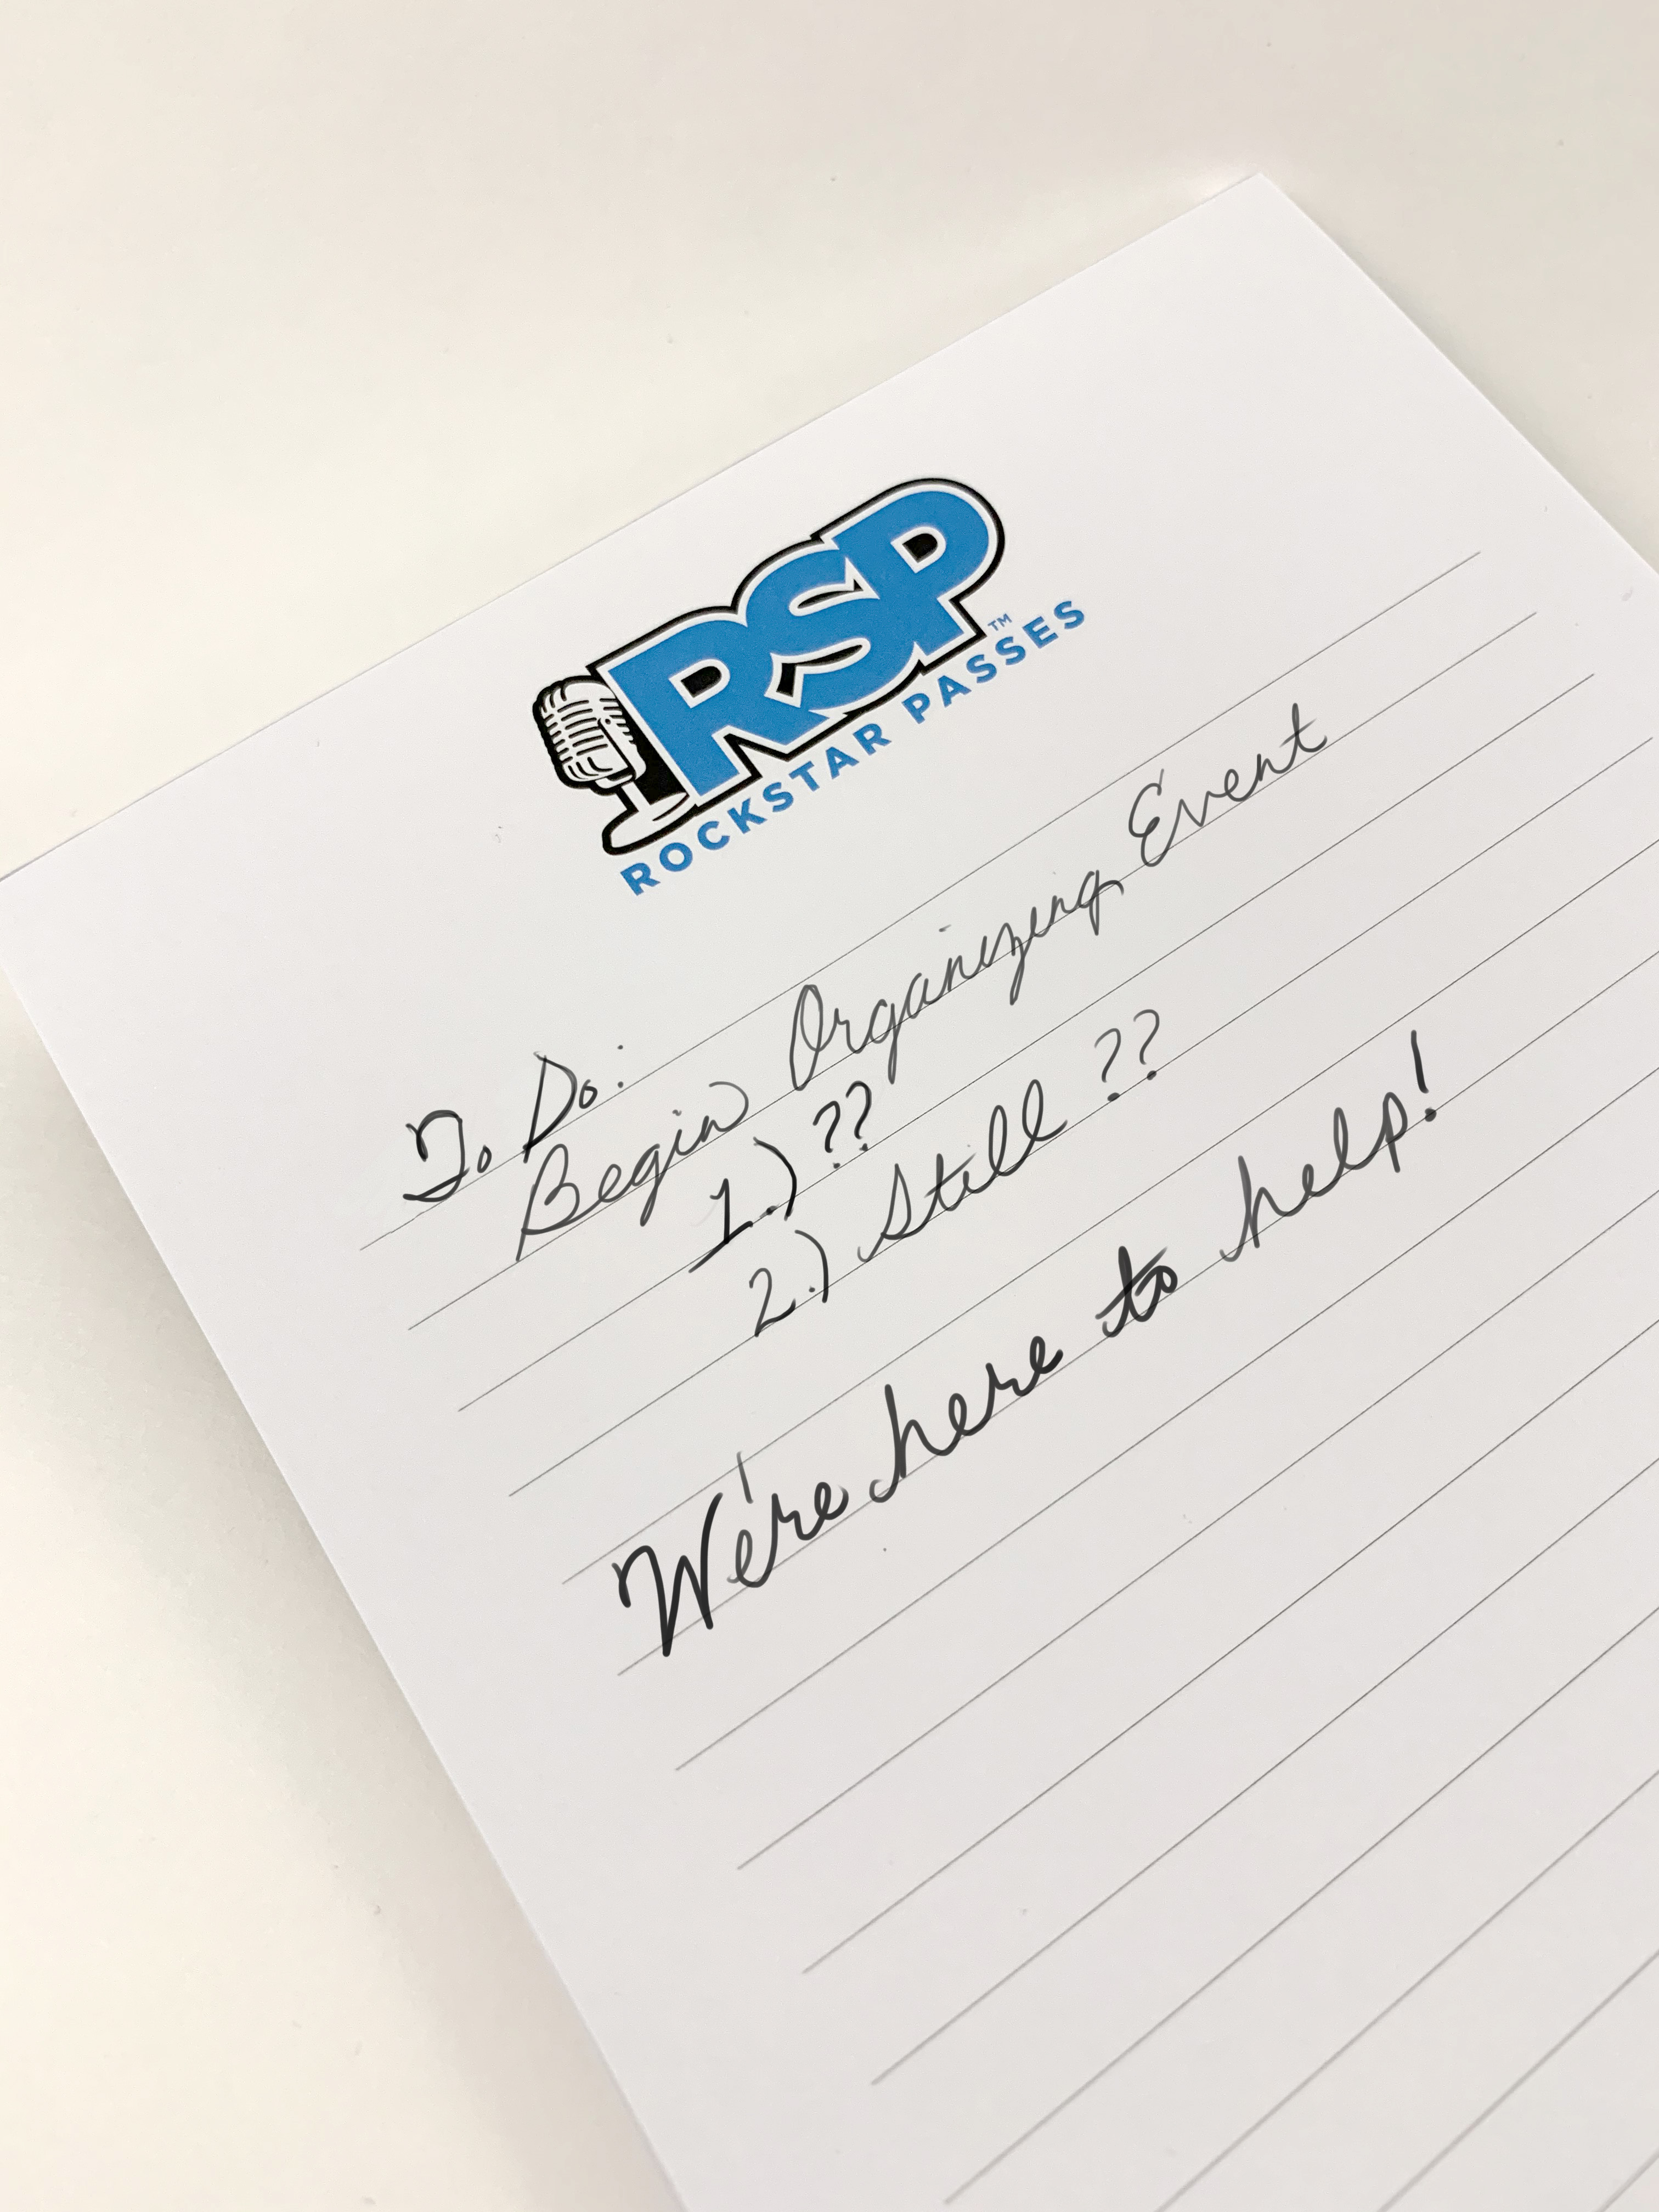 RSP™
ROCKSTAR PASSES
To Do:
Begin Organizing Event
1.) ??
2.) Still ??
We're here to help!